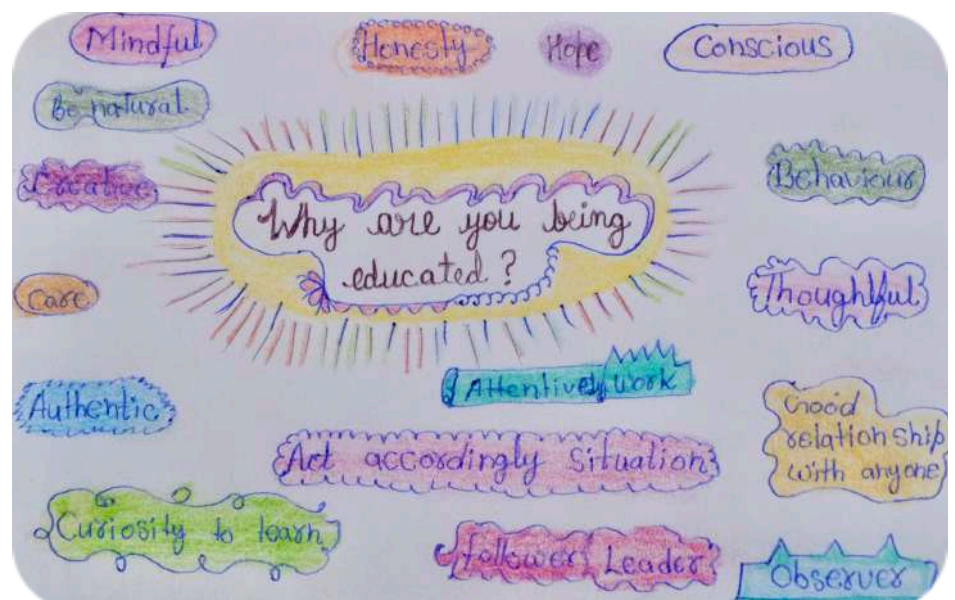 Mindful
Honesty
Hope
Conscious
Be natural
Creative
Behaviour
Why are you being
educated ?
Care
Thoughtful
Attentively work
Authentic
Good
relationship
with anyone
Act accordingly Situation
Curiosity to learn
follower Leader
Observer